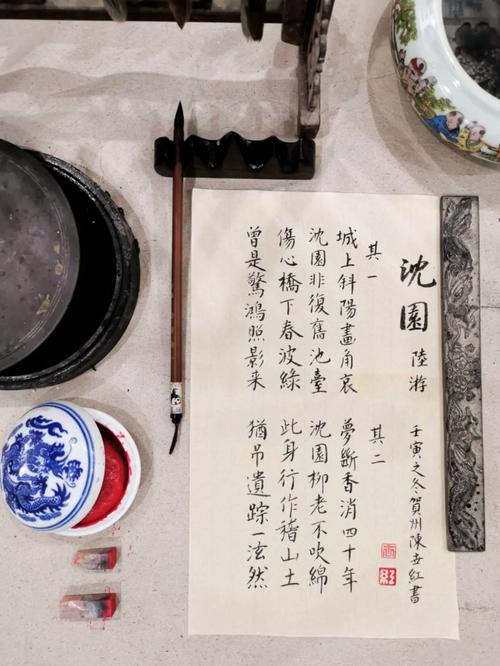 沈園 陸游
其一
城上斜陽畫角哀
沈園非復舊池臺
傷心橋下春波綠
曾是驚鴻照影来
其二
夢斷香消四十年
沈園柳老不吹綿
此身行作稽山土
猶吊遺踪一泫然
壬寅之冬賀州陳紅書
紅